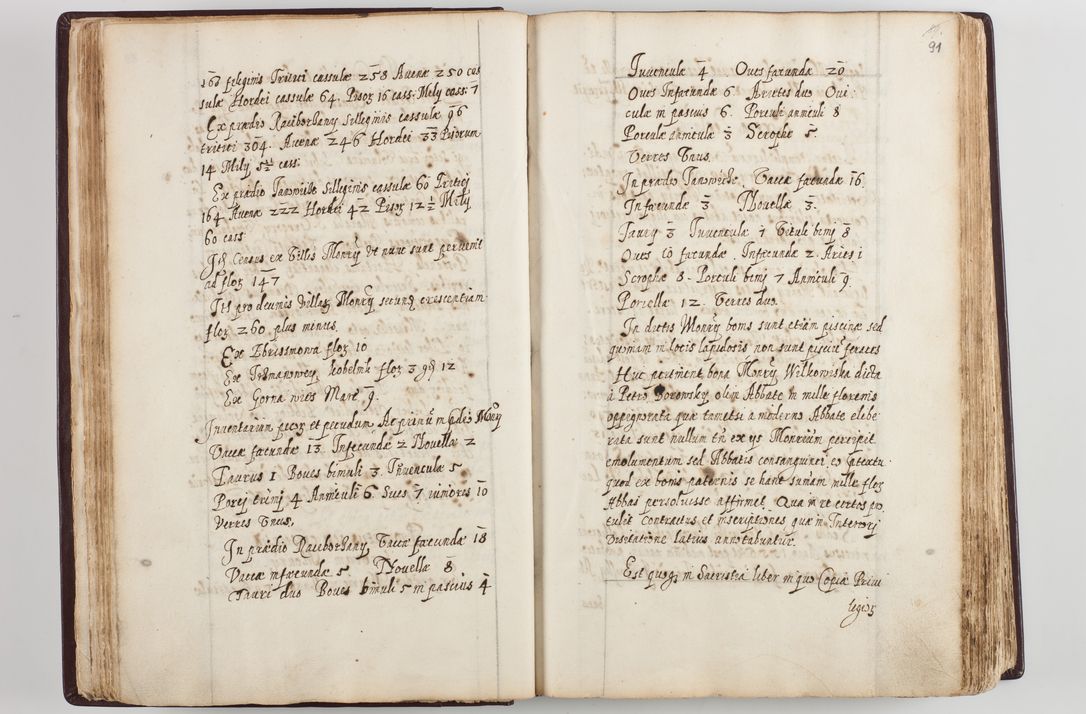 160 seleginis Tritici cassulæ 258 Auenæ 250 cas
sulæ Hordei cassulæ 64. Pisoꝝ 16 cass: Mely cass: 7
Ex prædio Raciborhany Silleginis cassulæ 96
tritici 304. Auenæ 246 Hordei 33 Pisorum
14 Milij 5½ cass:
Ex prædio Janowice silleginis cassulæ 60 Tritici
164 Auenæ 222 Hordei 42 Pisoꝝ 12½ Mely
60 cass
Itē Census ex Villis Monrÿ vt nunc sunt peruenit
ad floꝝ 147
Itē pro decimis Villaꝝ Monrÿ secunꝫ crescentiam
floꝝ 260 plus minus.
Ex Ebrissmowa floꝝ 10
Ex Trzmanowey kobelnik floꝝ 3 gꝝ 12
Ex Gorna wies Marc 9.
Inuentarium pecoꝝ et pecudum Ac primū in prædio Monrÿ
Vaccæ fæcundæ 13 Infecundæ 2 Nouellæ 2
Taurus 1 Boues bimuli 3 Inuenculæ 5
Porcj trimj 4 Anniculi 6 Sues 7 iuniores 10
Verres Vnus,
In prædio Raciborhany, Vaccæ fæcundæ 18
Vaccæ infæcundæ 5 Nouellæ 8
Tauri duo Boues bimuli 5 in pascuis 4
91
Iuuenculæ 4 Oues fæcundæ 20
Oues Infæcundæ 6 Arietes duo Oui:
culæ in pascuis 6. Porculi anniculi 8
Porculæ anniculæ 3 Scrophæ 5.
Verres Vnus.
In prædio Janowiche, Vaccæ fæcundæ 16.
Infæcundæ 3 Nouellæ 3.
Taurj 3 Iuuenculæ 7 Vituli bimj 8
Oues 10 fæcundæ. Infæcundæ 2. Aries 1
Scrophæ 8. Porculi bimj 7 Anniculi 9.
Porcellæ 12. Verres duo.
In dictis Monrÿ bonis sunt etiam piscinæ sed
quoniam in locis lapidosis non sunt pisciū feraces
Huc pertinent bona Monrÿ Wilkowiska dicta
à Petro Borowsky olim Abbate in mille florenis
oppignorata quæ tametsi à moderno Abbate elibe
rata sunt nullum tn̄ ex ijs Monrium percipit
emolumentum sed Abbatis consanguinei, eo prætextu
quod ex bonis paternis se hanc sumam mille floꝝ
Abbas persoluisse affirmet. Qua in re certos pro
tulit contractus et inscriptiones quæ in Interiorj
Visitatione latius annotabuntur.
Est quoqꝫ in Sacristia liber in quo Copiæ Priui
legioꝝ